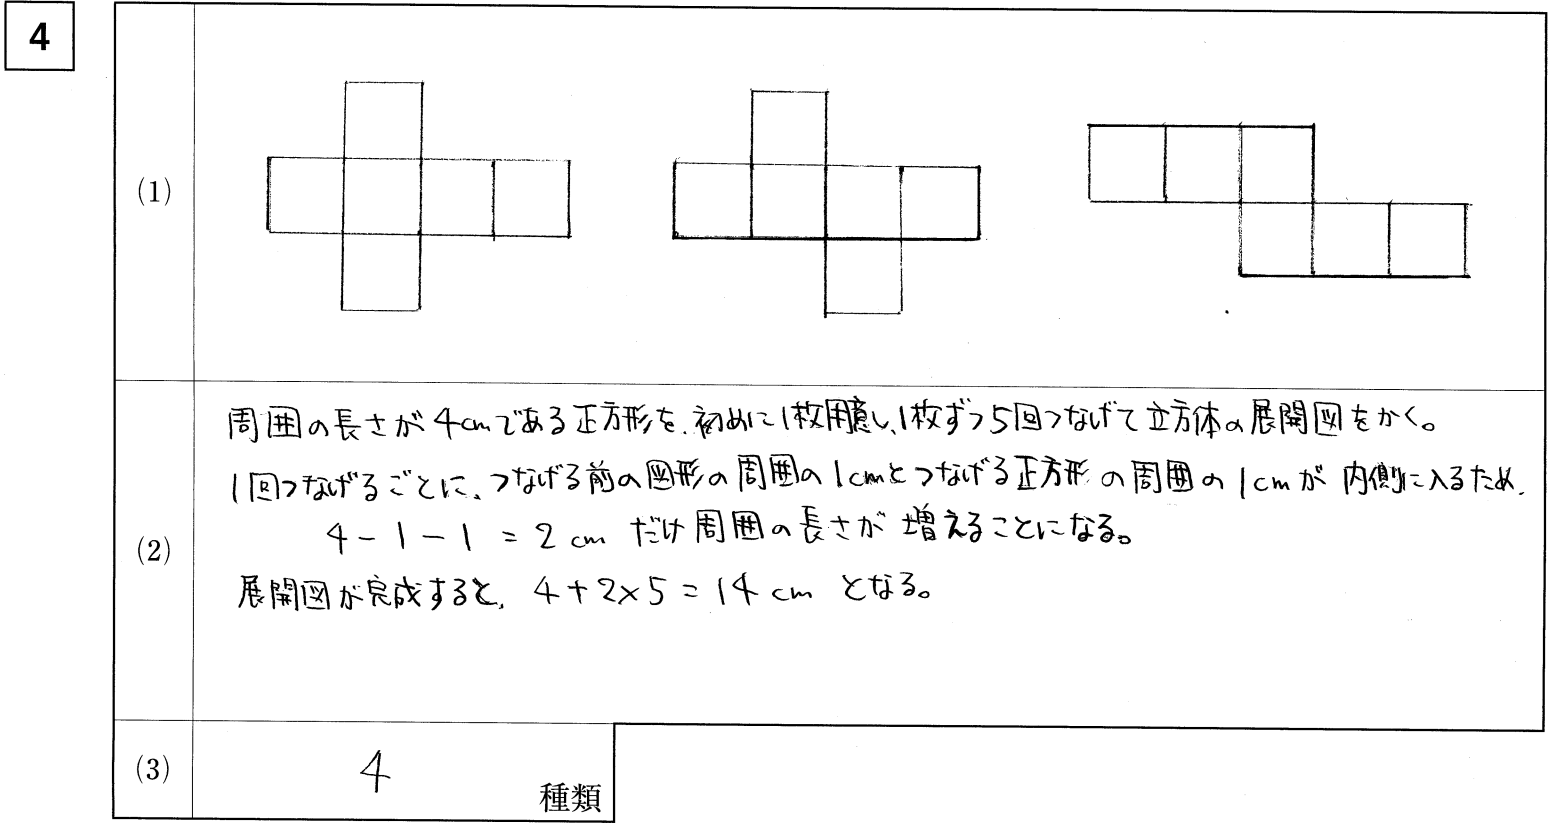 4
(1)
(2)
周囲の長さが4cmである正方形を、初めに1枚用意し、1枚ずつ5回つなげて立方体の展開図をかく。
1回つなげるごとに、つなげる前の図形の周囲の1cmとつなげる正方形の周囲の1cmが内側に入るため、
4-1-1=2cmだけ周囲の長さが増えることになる。
展開図が完成すると、4+2×5=14cmとなる。
(3)
4種類